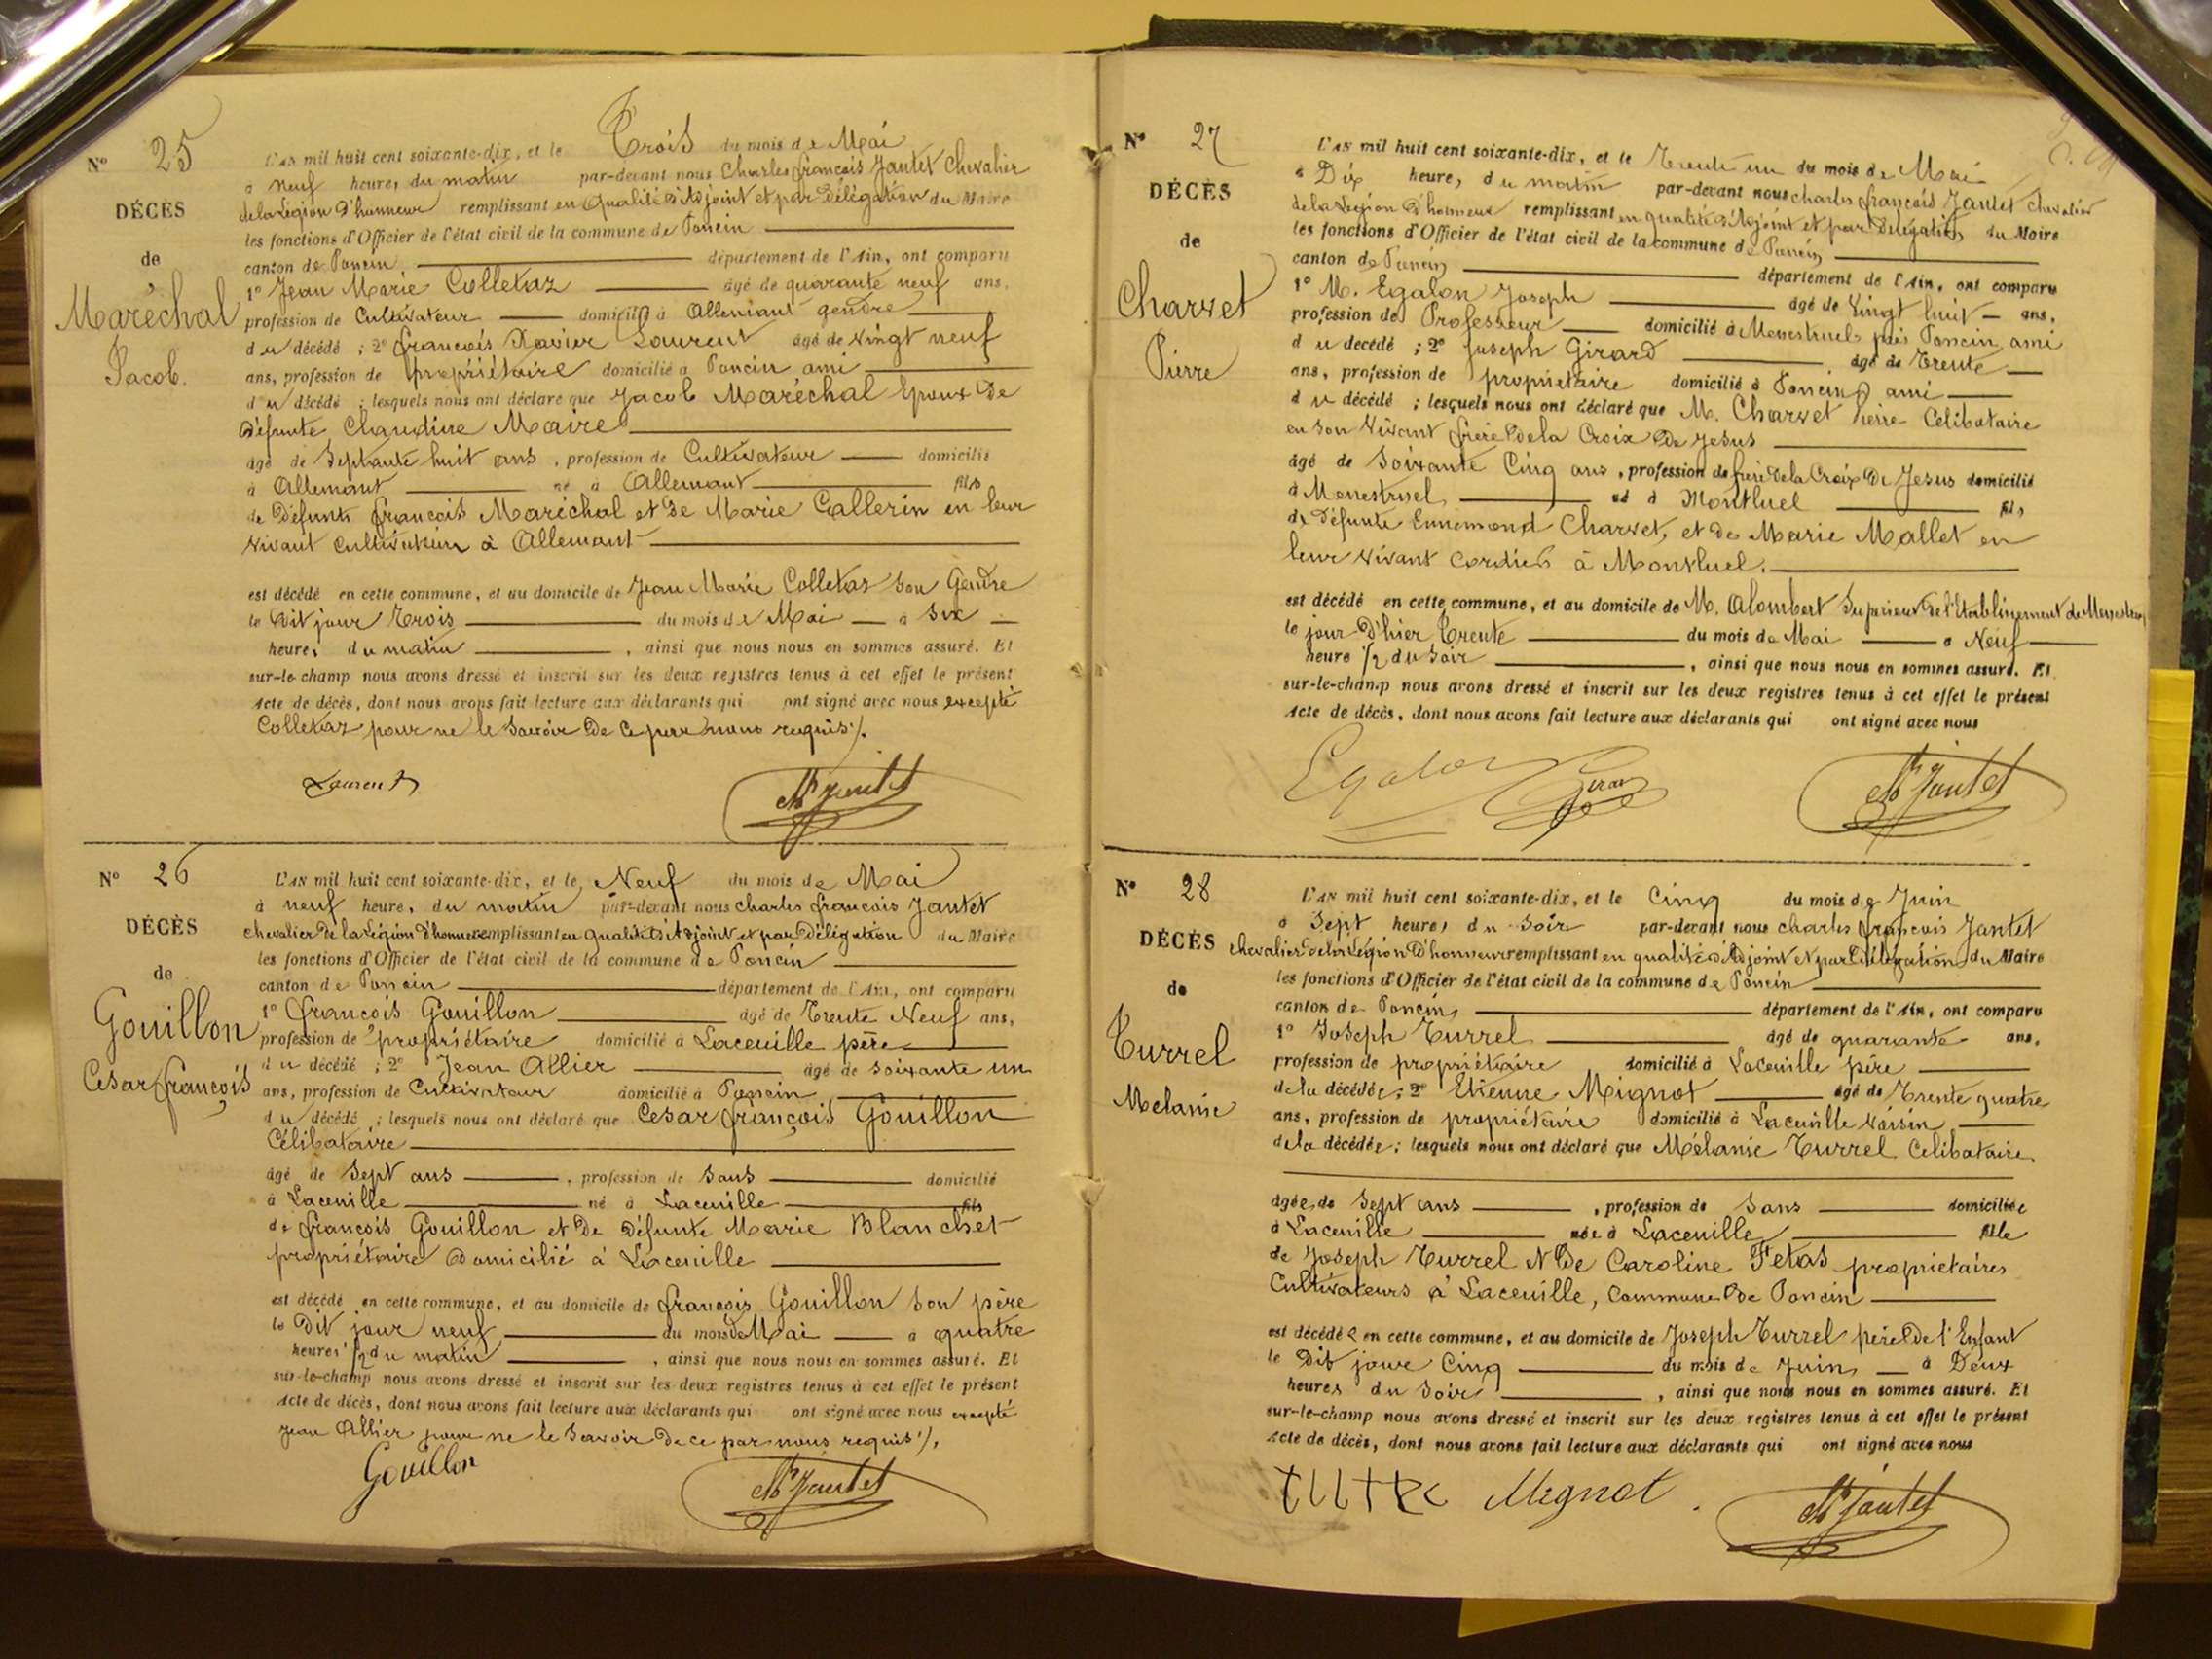 N° 25
DÉCÈS
de
Maréchal
Jacob.
L'AN mil huit cent soixante-dix, et le Trois du mois de Mai
à neuf heures du matin par-devant nous Charles françois Jantet Chevalier
de la Légion d'honneur remplissant en qualité d'Adjoint et par Délégation du Maire
les fonctions d'Officier de l'état civil de la commune de Poncin
canton de Poncin, département de l'Ain, ont comparu
1° Jean Marie Colletaz âgé de quarante neuf ans,
profession de Cultivateur domicilié à Allemant gendre
du décédé ; 2° françois Xavier Laurent âgé de vingt neuf
ans, profession de propriétaire domicilié à Poncin ami
du décédé ; lesquels nous ont déclaré que Jacob Maréchal Epoux de
défunte Claudine Maire
âgé de Septante huit ans, profession de Cultivateur domicilié
à Allemant né à Allemant fils
de défunts françois Maréchal et de Marie Callerin en leur
vivant cultivateurs à Allemant
est décédé en cette commune, et au domicile de Jean Marie Colletaz son Gendre
le dit jour Trois du mois de Mai à Six
heures du matin, ainsi que nous nous en sommes assuré. Et
sur-le-champ nous avons dressé et inscrit sur les deux registres tenus à cet effet le présent
Acte de décès, dont nous avons fait lecture aux déclarants qui ont signé avec nous excepté
Colletaz pour ne le Savoir de ce par nous requis ./.
Laurent Ch Jantet
N° 26
DÉCÈS
de
Gouillon
Cesar françois
L'AN mil huit cent soixante-dix, et le Neuf du mois de Mai
à neuf heure, du matin par-devant nous Charles françois Jantet
chevalier de la Légion d'honneur remplissant en qualité d'Adjoint et par Délégation du Maire
les fonctions d'Officier de l'état civil de la commune de Poncin
canton de Poncin département de l'Ain, ont comparu
1° françois Gouillon âgé de Trente Neuf ans,
profession de propriétaire domicilié à Laceuille père
du décédé ; 2° Jean Allier âgé de soixante un
ans, profession de Cultivateur domicilié à Poncin
du décédé ; lesquels nous ont déclaré que Cesar françois Gouillon
Célibataire
âgé de Sept ans, profession de Sans domicilié
à Laceuille né à Laceuille fils
de françois Gouillon et de défunte Marie Blanchet
propriétaire domicilié à Laceuille
est décédé en cette commune, et au domicile de françois Gouillon son père
le Dit jour neuf du mois de Mai à quatre
heures 1/2 du matin, ainsi que nous nous en sommes assuré. Et
sur-le-champ nous avons dressé et inscrit sur les deux registres tenus à cet effet le présent
Acte de décès, dont nous avons fait lecture aux déclarants qui ont signé avec nous excepté
Jean Allier pour ne le Savoir de ce par nous requis ./.
Gouillon Ch Jantet
N° 27
DÉCÈS
de
Charvet
Pierre
L'AN mil huit cent soixante-dix, et le Trente un du mois de Mai
à Dix heure, du matin par-devant nous charles françois Jantet chevalier
de la Légion d'honneur remplissant en qualité d'Adjoint et par Délégation du Maire
les fonctions d'Officier de l'état civil de la commune de Poncin
canton de Poncin département de l'Ain, ont comparu
1° M. Egalon Joseph âgé de Vingt huit ans,
profession de Professeur domicilié à Menestruel près Poncin, ami
du décédé ; 2° Joseph Girard âgé de Trente
ans, profession de propriétaire domicilié à Poncin ami
du décédé ; lesquels nous ont déclaré que M. Charvet Pierre Célibataire
en son Vivant frère de la Croix de Jesus
âgé de Soixante Cinq ans, profession de frère de la Croix de Jesus domicilié
à Menestruel né à Montluel fils
de défunts Ennemond Charvet, et de Marie Mallet en
leur vivant Cordiers à Montluel.
est décédé en cette commune, et au domicile de M. Alombert Superieur de l'Etablissement de Menestruel
le jour d'hier Trente du mois de Mai à Neuf
heure 1/2 du Soir, ainsi que nous nous en sommes assuré. Et
sur-le-champ nous avons dressé et inscrit sur les deux registres tenus à cet effet le présent
Acte de décès, dont nous avons fait lecture aux déclarants qui ont signé avec nous
Egalon Girard Ch Jantet
N° 28
DÉCÈS
de
Turrel
Melanie
L'AN mil huit cent soixante-dix, et le Cinq du mois de Juin
à Sept heures du Soir par-devant nous charles françois Jantet
chevalier de la Légion d'honneur remplissant en qualité d'Adjoint et par Délégation du Maire
les fonctions d'Officier de l'état civil de la commune de Poncin
canton de Poncin département de l'Ain, ont comparu
1° Joseph Turrel âgé de quarante ans,
profession de propriétaire domicilié à Laceuille père
de la décédée ; 2° Etienne Mignot âgé de Trente quatre
ans, profession de propriétaire domicilié à Laceuille Voisin
de la décédée ; lesquels nous ont déclaré que Mélanie Turrel Celibataire
âgée de Sept ans, profession de Sans domiciliée
à Laceuille née à Laceuille fille
de Joseph Turrel et de Caroline Fetas propriétaires
Cultivateurs à Laceuille, Commune de Poncin
est décédée en cette commune, et au domicile de Joseph Turrel père de l'Enfant
le Dit jour Cinq du mois de Juin à Deux
heures du Soir, ainsi que nous nous en sommes assuré. Et
sur-le-champ nous avons dressé et inscrit sur les deux registres tenus à cet effet le présent
Acte de décès, dont nous avons fait lecture aux déclarants qui ont signé avec nous
Mignot. Ch Jantet